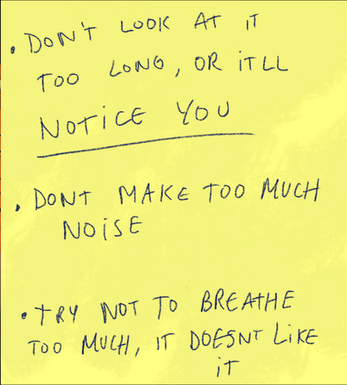 • DON'T LOOK AT IT
TOO LONG, OR iTLL
NOTiCE YOU
• DONT MAKE TOO MUCH
NOiSE
• TRY NOT TO BREATHE
TOO MUCH, IT DOESNT LiKE
iT